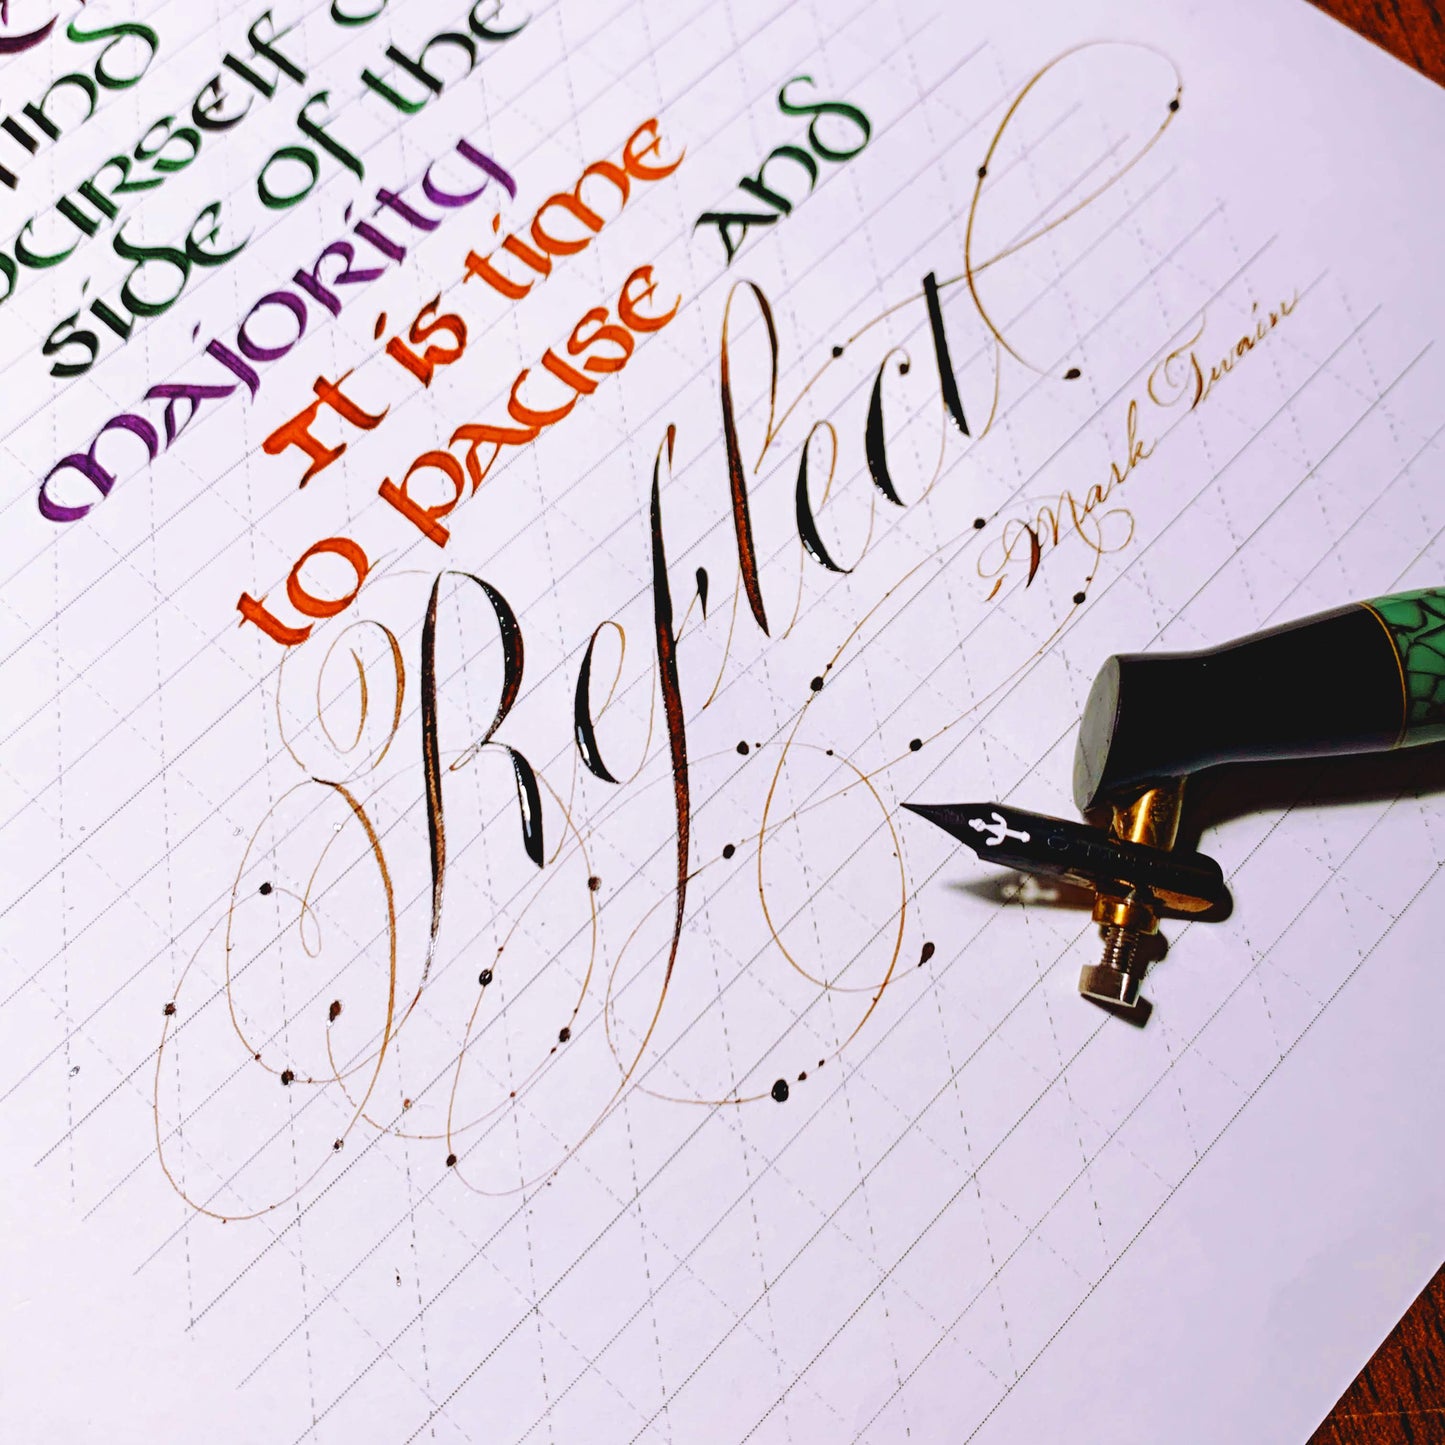 ind
ourself o
side of the
majority
It is time
to pause and
Reflect
Mark Twain